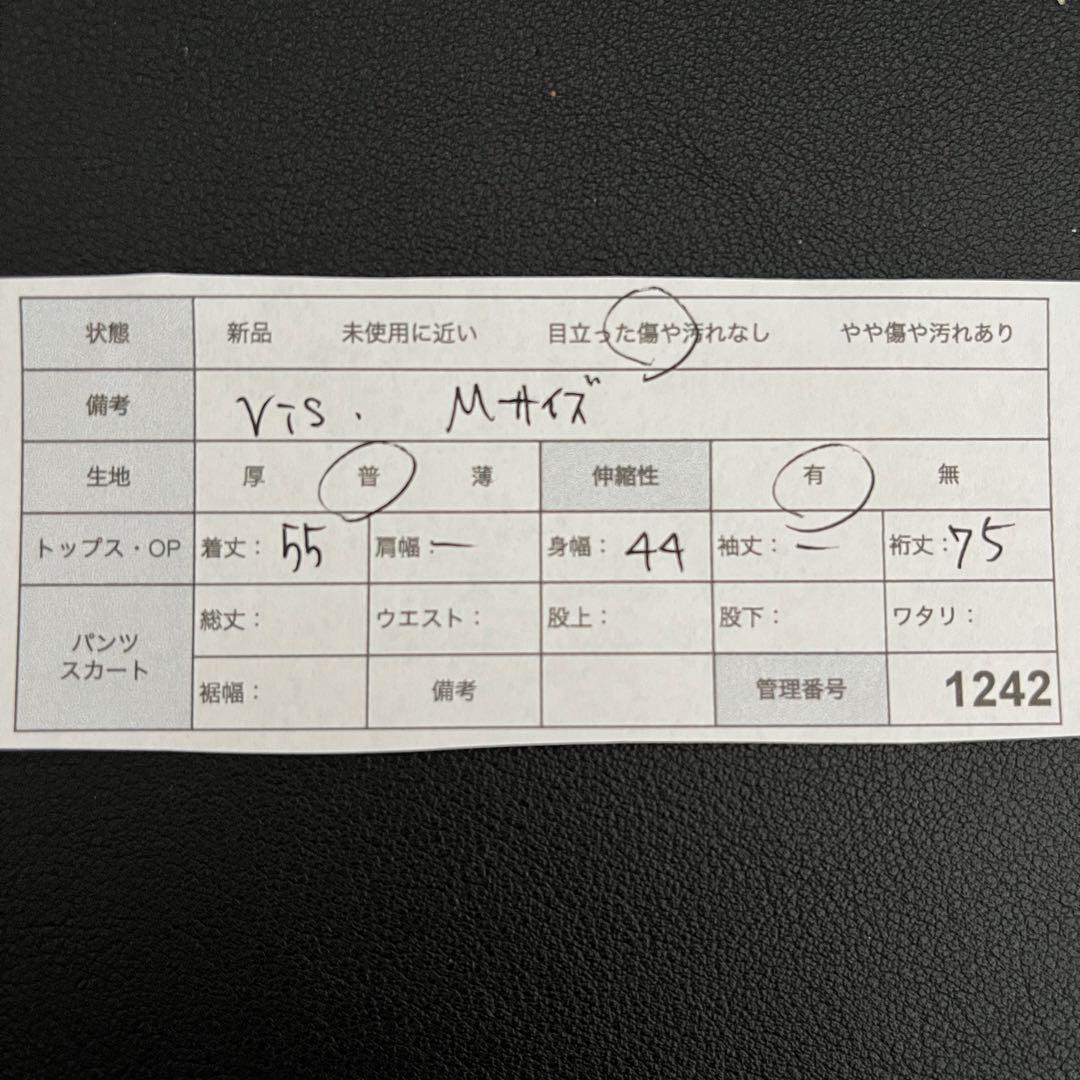 状態 新品 未使用に近い 目立った傷や汚れなし やや傷や汚れあり
備考 ViS. Mサイズ
生地 厚 普 薄 伸縮性 有 無
トップス・OP 着丈：55 肩幅：ー 身幅：44 袖丈：ー 裄丈：75
パンツ スカート 総丈： ウエスト： 股上： 股下： ワタリ：
裾幅： 備考 管理番号 1242